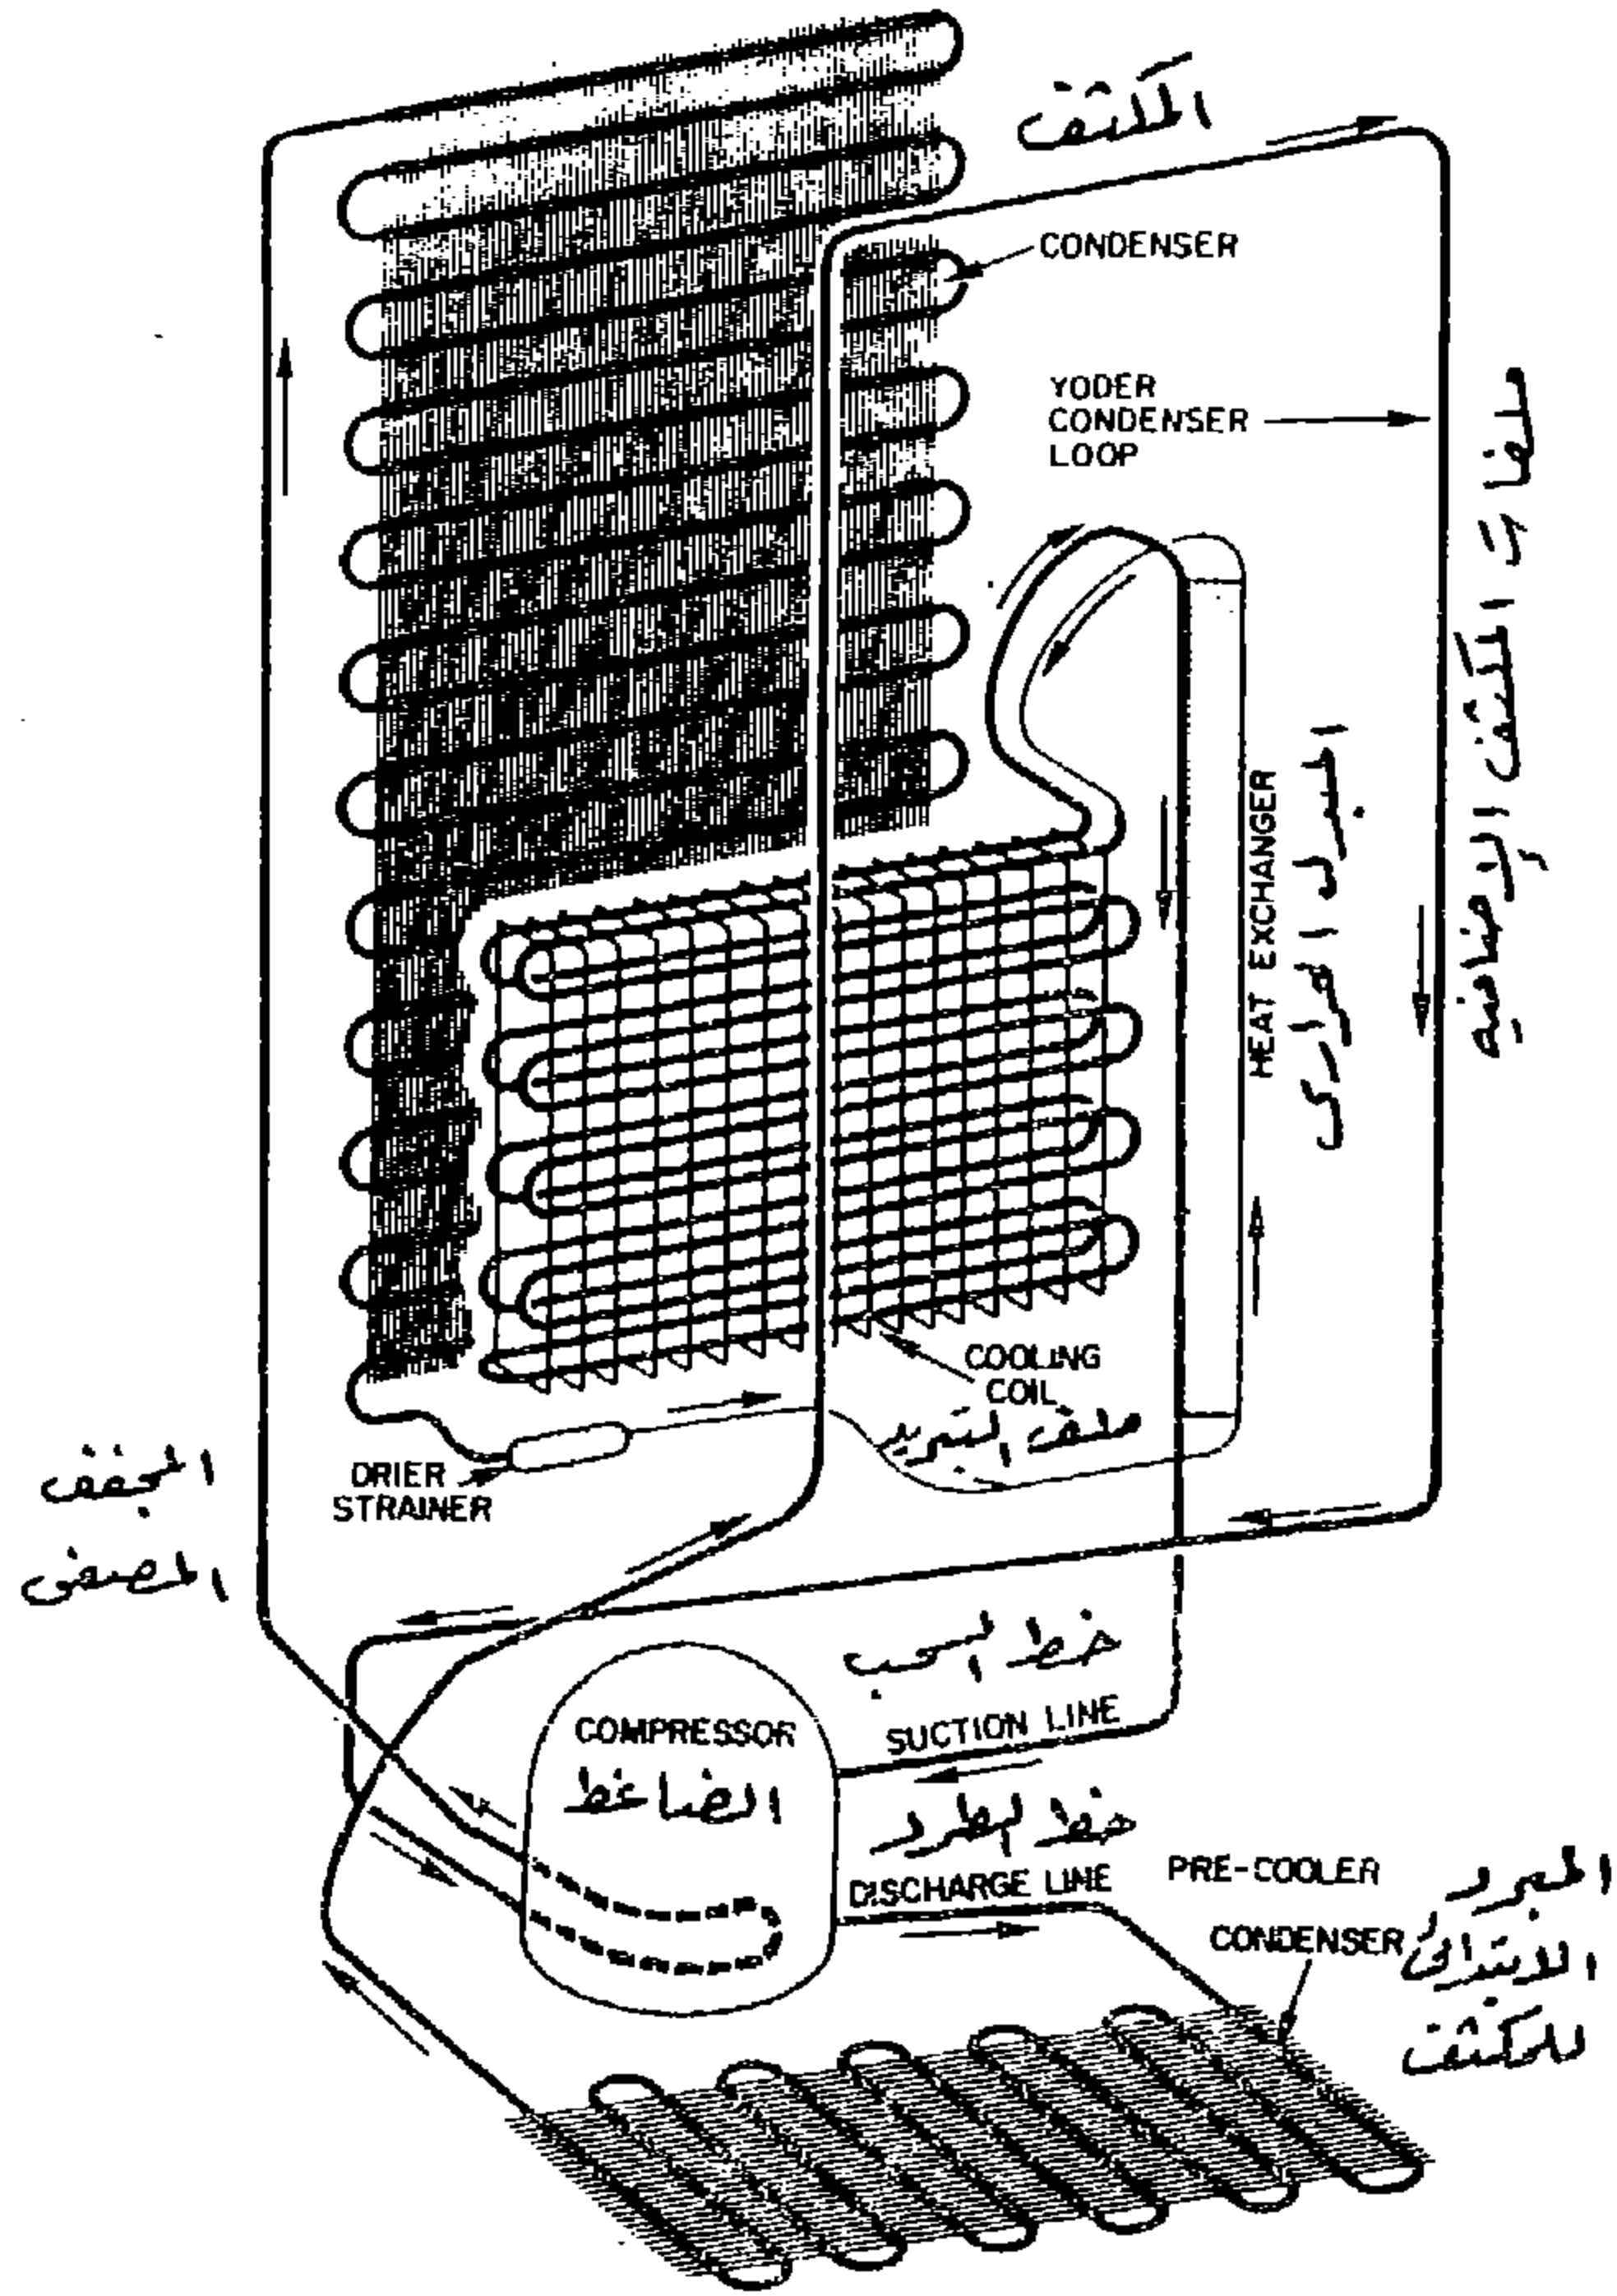 المكثف
CONDENSER
YODER
CONDENSER
LOOP
ملفات المكثف الإضافيه
HEAT EXCHANGER
المبدل الحرارى
COOLING
COIL
ملف التبريد
المجفف
المصفى
DRIER
STRAINER
خط السحب
SUCTION LINE
COMPRESSOR
الضاغط
خط الطرد
DISCHARGE LINE
PRE-COOLER
CONDENSER
المبرد
الابتدائى
للمكثف